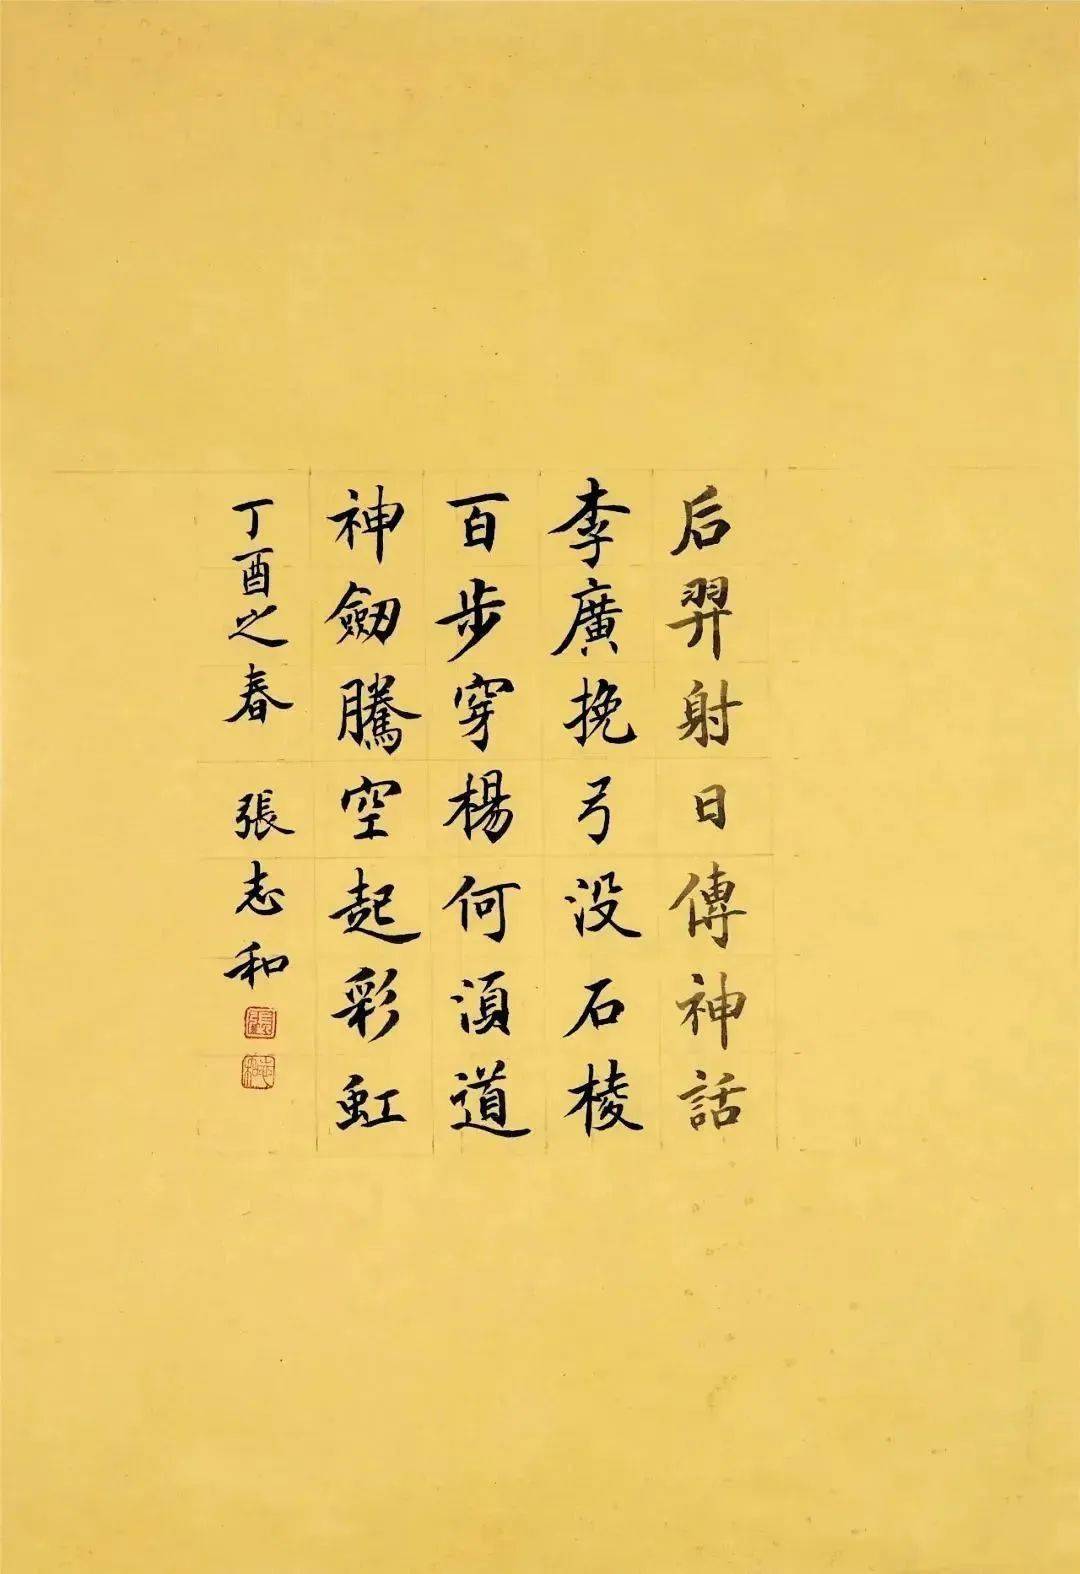 后羿射日傳神話
李廣挽弓没石棱
百步穿楊何須道
神劒騰空起彩虹
丁酉之春 張志和